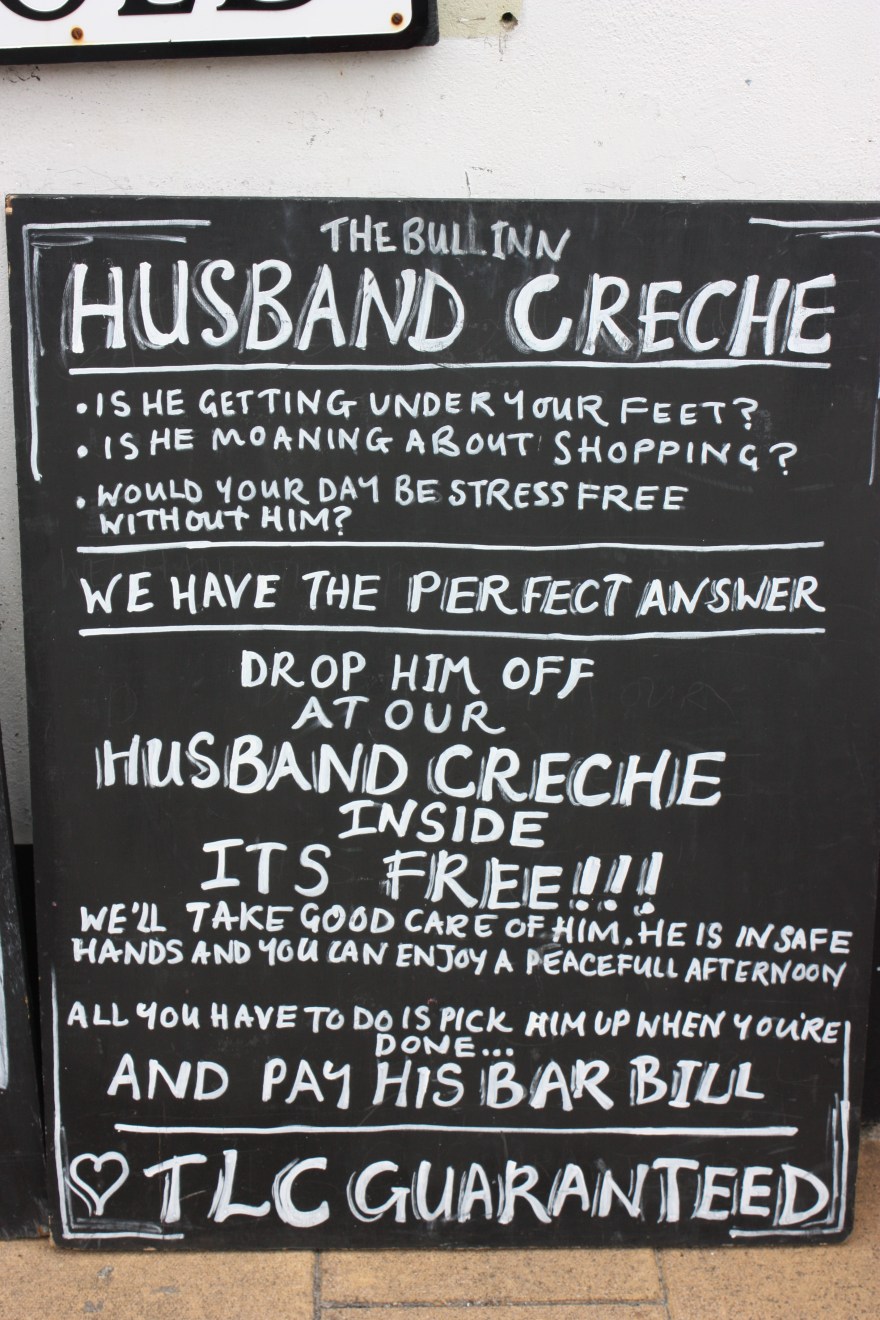 THE BULL INN
HUSBAND CRECHE
• IS HE GETTING UNDER YOUR FEET?
• IS HE MOANING ABOUT SHOPPING?
• WOULD YOUR DAY BE STRESS FREE
WITHOUT HIM?
WE HAVE THE PERFECT ANSWER
DROP HIM OFF
AT OUR
HUSBAND CRECHE
INSIDE
ITS FREE!!!
WE'LL TAKE GOOD CARE OF HIM. HE IS IN SAFE
HANDS AND YOU CAN ENJOY A PEACEFULL AFTERNOON
ALL YOU HAVE TO DO IS PICK HIM UP WHEN YOU'RE
DONE...
AND PAY HIS BAR BILL
♡ TLC GUARANTEED